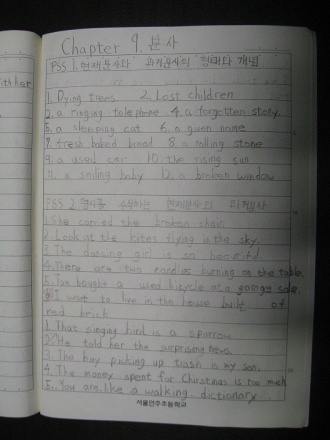 Chapter 9. 분사
PSS 1. 현재분사와 과거분사의 형태와 개념
1. Dying trees. 2. Lost children
3. a ringing telephone 4. a forgotten story.
5. a sleeping cat 6. a given name
7. fresh baked bread 8. a rolling stone
9. a used car 10. the rising sun
11. a smiling baby 12. a broken window
PSS 2. 명사를 수식하는 현재분사와 과거분사
1. She carried the broken chair.
2. Look at the kites flying in the sky.
3. The dancing girl is so beautiful
4. There are two candles burning on the table.
5. Tom bought a used bicycle at a garage sale.
6. I want to live in the house built of
red brick
1. That singing bird is a sparrow
2. He told her the surprising news.
3. The boy picking up trash is my son.
4. The money spent for Christmas is too much
5. You are like a walking dictionary